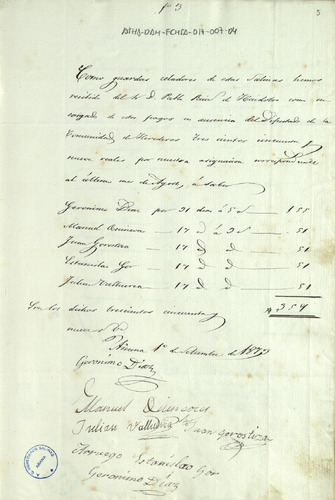 nº 3
5
ATHA-DAH-FCHSA-017-007-04
Como guardas celadores de estas Salinas hemos
recibido del Sr. D. Pablo de como en-
cargado de estos pagos en ausencia del Diputado de la
Comunidad de Herederos tres cientos cincuenta y
nueve reales por nuestra asignacion correspondiente
al último mes de Agosto, á saber
Geronimo Diaz por 31 dias á 5 155
Manuel 17 d á 3 51
Juan Gorostiza 17 d d 51
Estanislao Gor 17 d d 51
Julian Valluerca 17 d d 51
359
Son los dichos trescientos cincuenta
nueve
Añana 1º de Setiembre de 1873
Geronimo Diaz
Manuel
Julian Valluerca Juan Gorostiza
Estanislao Gor
Geronimo Diaz